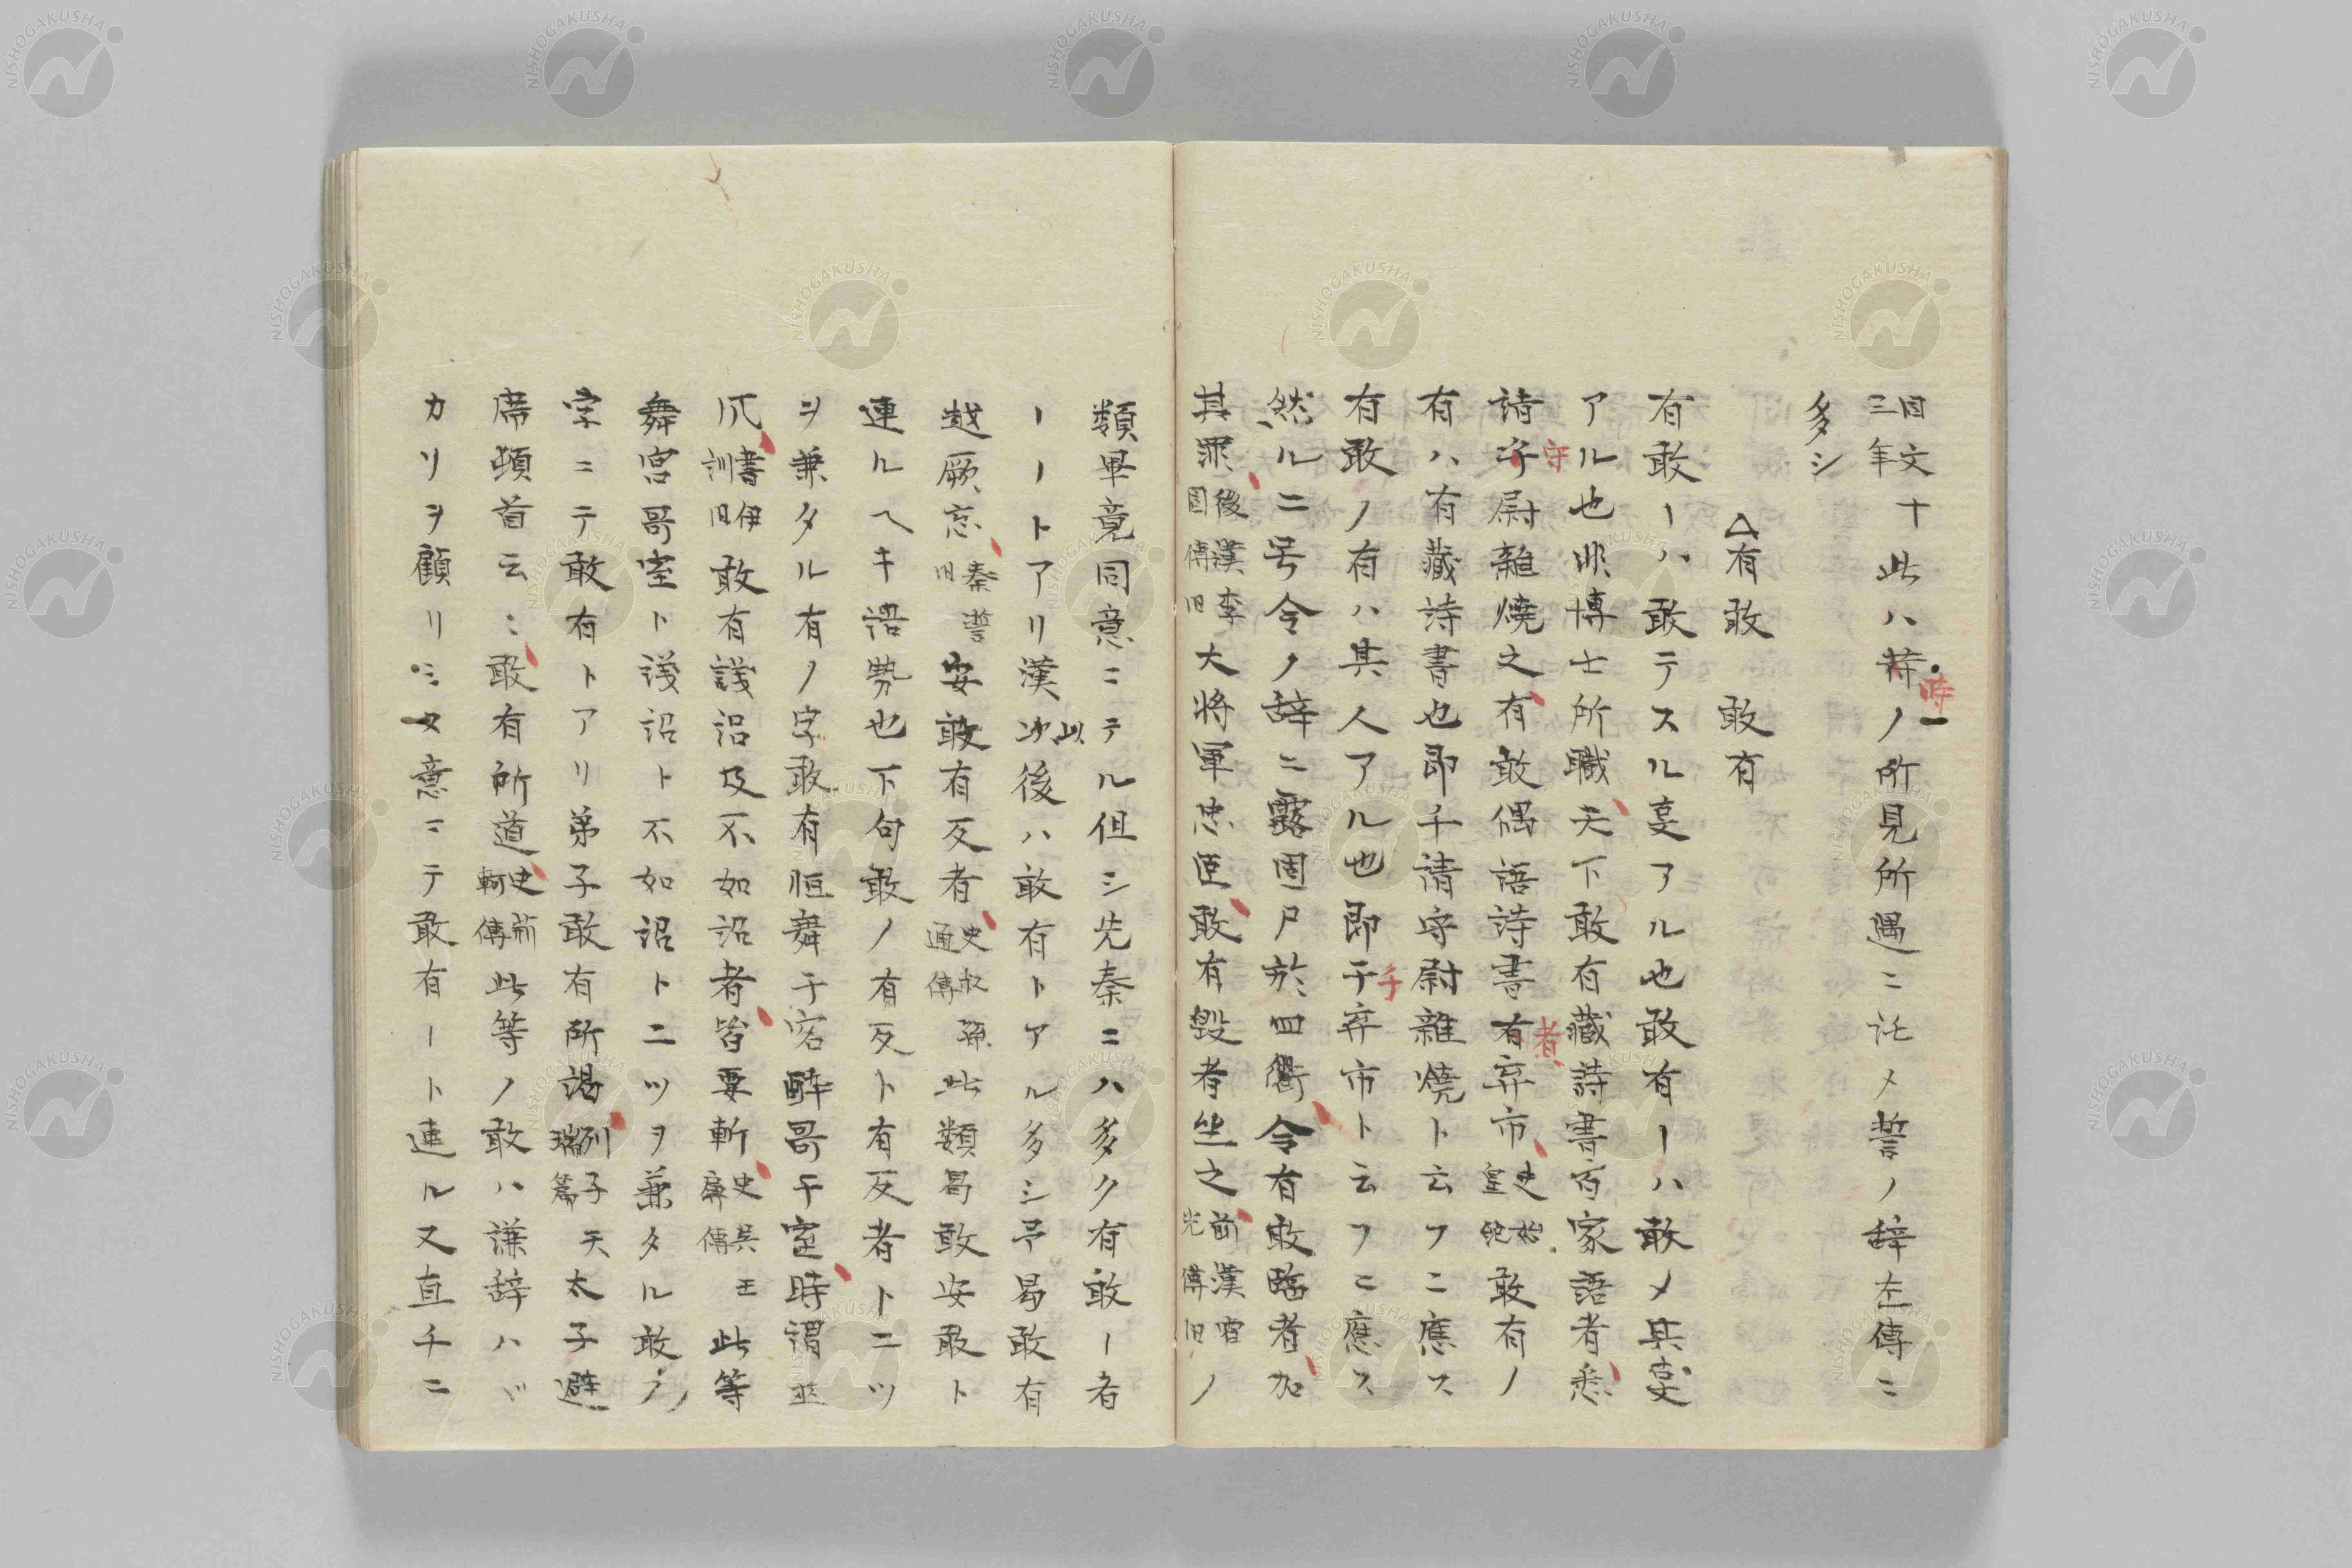 同文十三年此ハ時ノ所見所遇ニ託メ誓ノ辞左傳ニ
多シ
△有敢　敢有
有敢ーハ敢テスル㕝アル也敢有ーハ敢メ其㕝
アル也非博士所職天下敢有藏詩書百家語者悉
詣守尉雜燒之有敢偶語詩書者弃市史始皇紀敢有ノ
有ハ有藏詩書也即チ請守尉雜燒ト云フニ應ス
有敢ノ有ハ其人アル也即チ弃市ト云フニ應ス
然ルニ号令ノ辞ニ露固尸於四衢令有敢臨者加
其罪後漢李固傳旧大將軍忠臣敢有毀者坐之前漢霍光傳旧ノ
類畢竟同意ニテル但シ先秦ニハ多ク有敢ー者
ーートアリ漢以後ハ敢有トアル多シ予曷敢有
越厥志秦誓旧安敢有反者史叔孫通傳此類曷敢安敢ト
連ルヘキ語勢也下句敢ノ有反ト有反者トニツ
ヲ兼タル有ノ字敢有恒舞于宮酣哥于室時謂巫
風書伊訓旧敢有諫詔及不如詔者皆要斬史呉王濞傳此等
舞宮哥室ト諫詔ト不如詔トニツヲ兼タル敢ノ
字ニテ敢有トアリ弟子敢有所謁列子瑞篇天太子避
席頓首云ミ敢有所道史荊軻傳此等ノ敢ハ謙辞ハヾ
カリヲ顧リミヌ意ニテ敢有ート連ル又直チニ